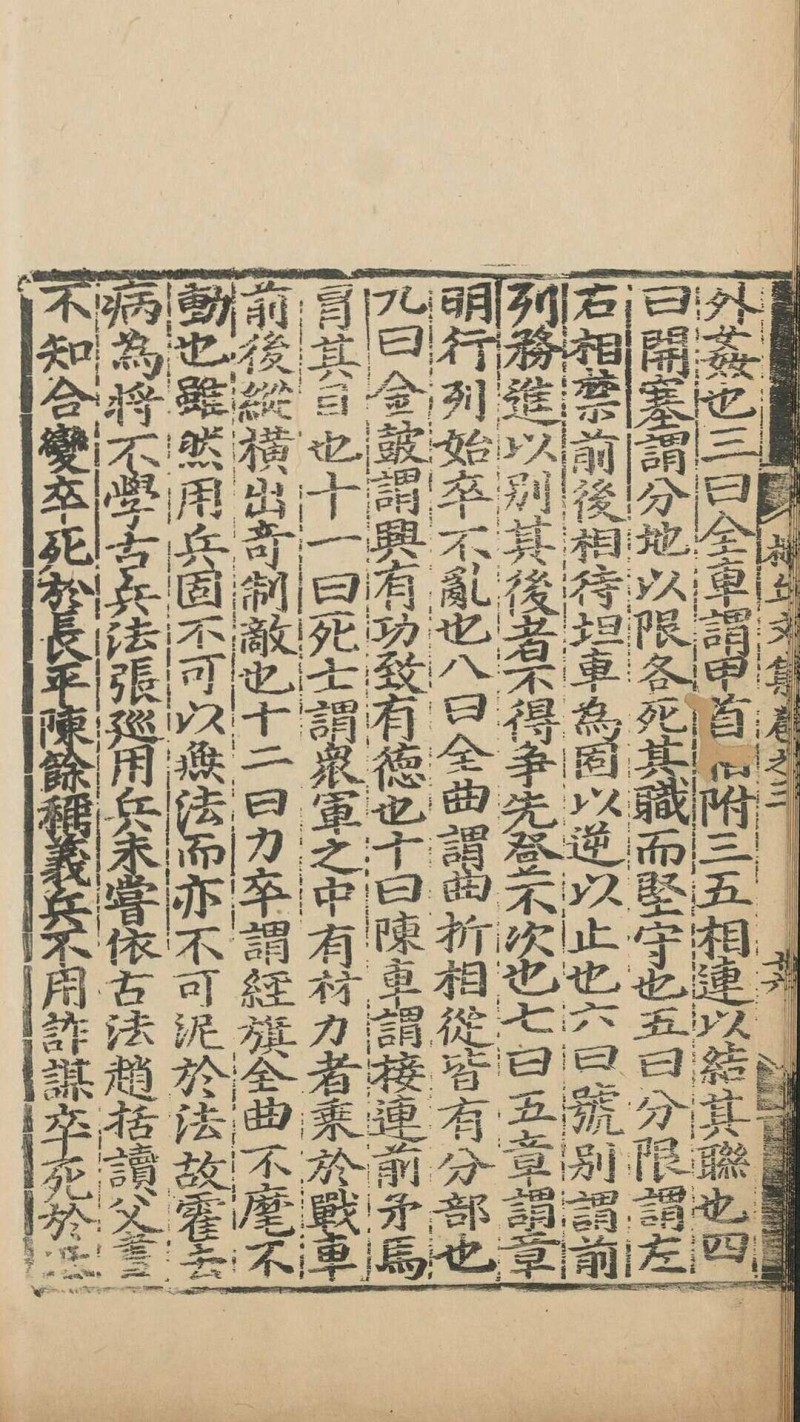 外姦也三曰全車謂甲首相附三五相連以結其聯也四
曰開塞謂分地以限各死其職而堅守也五曰分限謂左
右相禁前後相待坦車為固以逆以止也六曰號別謂前
列務進以別其後者不得争先登不次也七曰五章謂章
明行列始卒不亂也八曰全曲謂曲折相從皆有分部也
九曰金皷謂興有功致有德也十曰陳車謂接連前矛馬
冐其目也十一曰死士謂衆軍之中有材力者乘於戰車
前後縱横出竒制敵也十二曰力卒謂経旗全曲不麾不
動也雖然用兵固不可以無法而亦不可泥於法故霍去
病為将不學古兵法張巡用兵未嘗依古法趙括讀父書
不知合變卒死於長平陳餘稱義兵不用詐謀卒死於
文集卷之二